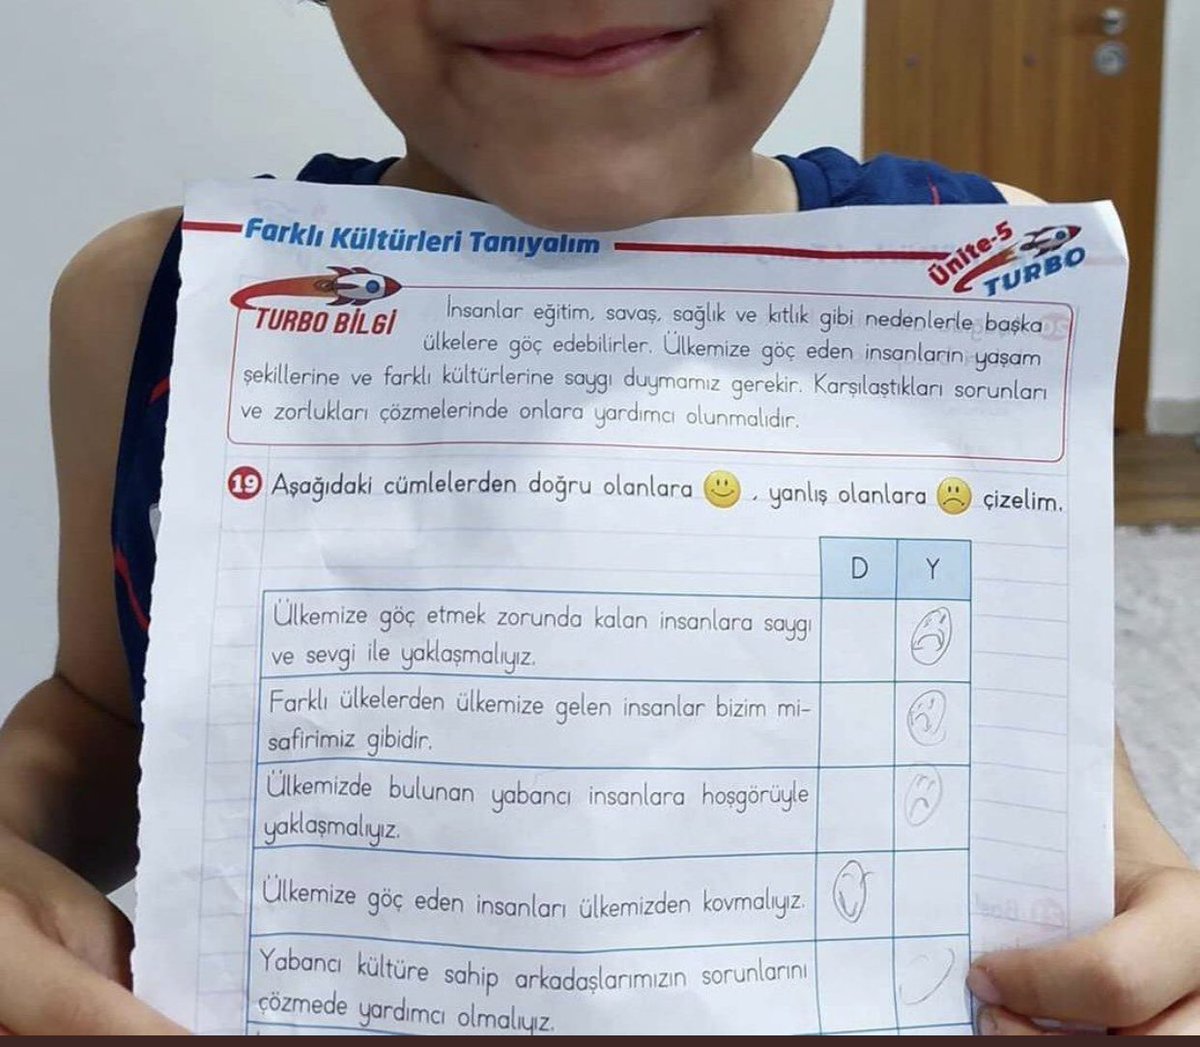 Farklı Kültürleri Tanıyalım
Ünite-5
TURBO
TURBO BİLGİ
İnsanlar eğitim, savaş, sağlık ve kıtlık gibi nedenlerle başka
ülkelere göç edebilirler. Ülkemize göç eden insanların yaşam
şekillerine ve farklı kültürlerine saygı duymamız gerekir. Karşılaştıkları sorunları
ve zorlukları çözmelerinde onlara yardımcı olunmalıdır.
19 Aşağıdaki cümlelerden doğru olanlara , yanlış olanlara çizelim.
D Y
Ülkemize göç etmek zorunda kalan insanlara saygı
ve sevgi ile yaklaşmalıyız.
Farklı ülkelerden ülkemize gelen insanlar bizim mi-
safirimiz gibidir.
Ülkemizde bulunan yabancı insanlara hoşgörüyle
yaklaşmalıyız.
Ülkemize göç eden insanları ülkemizden kovmalıyız.
Yabancı kültüre sahip arkadaşlarımızın sorunlarını
çözmede yardımcı olmalıyız.